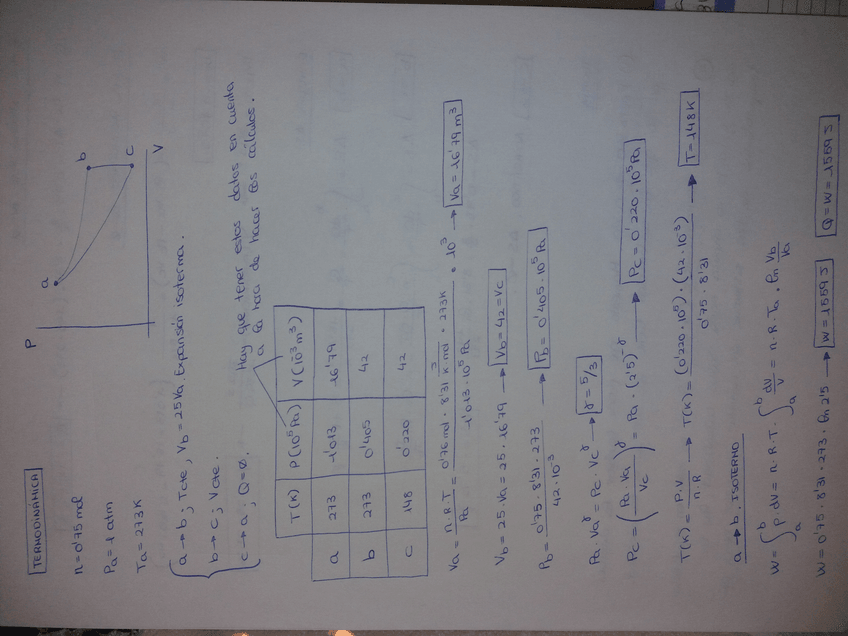 TERMODINÁMICA
n = 0'75 mol
Pa = 1 atm
Ta = 273 K
a → b ; T cte , Vb = 25 Va . Expansión isoterma.
b → c ; V cte.
c → a ; Q = 0.
P
a
b
c
V
Hay que tener estos datos en cuenta
a la hora de hacer los cálculos.
T (K) P (10⁵ Pa) V (10⁻³ m³)
a 273 1'013 16'79
b 273 0'405 42
c 148 0'220 42
Va = n·R·T / Pa = 0'76 mol · 8'31 K mol · 273 K / 1'013 · 10⁵ Pa · 10³ → Va = 16'79 m³
Vb = 25 · Va = 25 · 16'79 → Vb = 42 = Vc
Pb = 0'75 · 8'31 · 273 / 42 · 10⁻³ → Pb = 0'405 · 10⁵ Pa
Pa · Va^γ = Pc · Vc^γ → γ = 5/3
Pc = (Pa · Va / Vc)^γ = Pa · (2'5)^-γ → Pc = 0'220 · 10⁵ Pa
T(K) = P·V / n·R → T(K) = (0'220 · 10⁵) · (42 · 10⁻³) / 0'75 · 8'31 → T = 148 K
a → b , ISOTERMO
W = ∫ₐᵇ p · dV = n · R · T · ∫ₐᵇ dV/V = n · R · Ta · ln Vb/Va
W = 0'75 · 8'31 · 273 · ln 2'5 → W = 1559 J Q = W = 1559 J